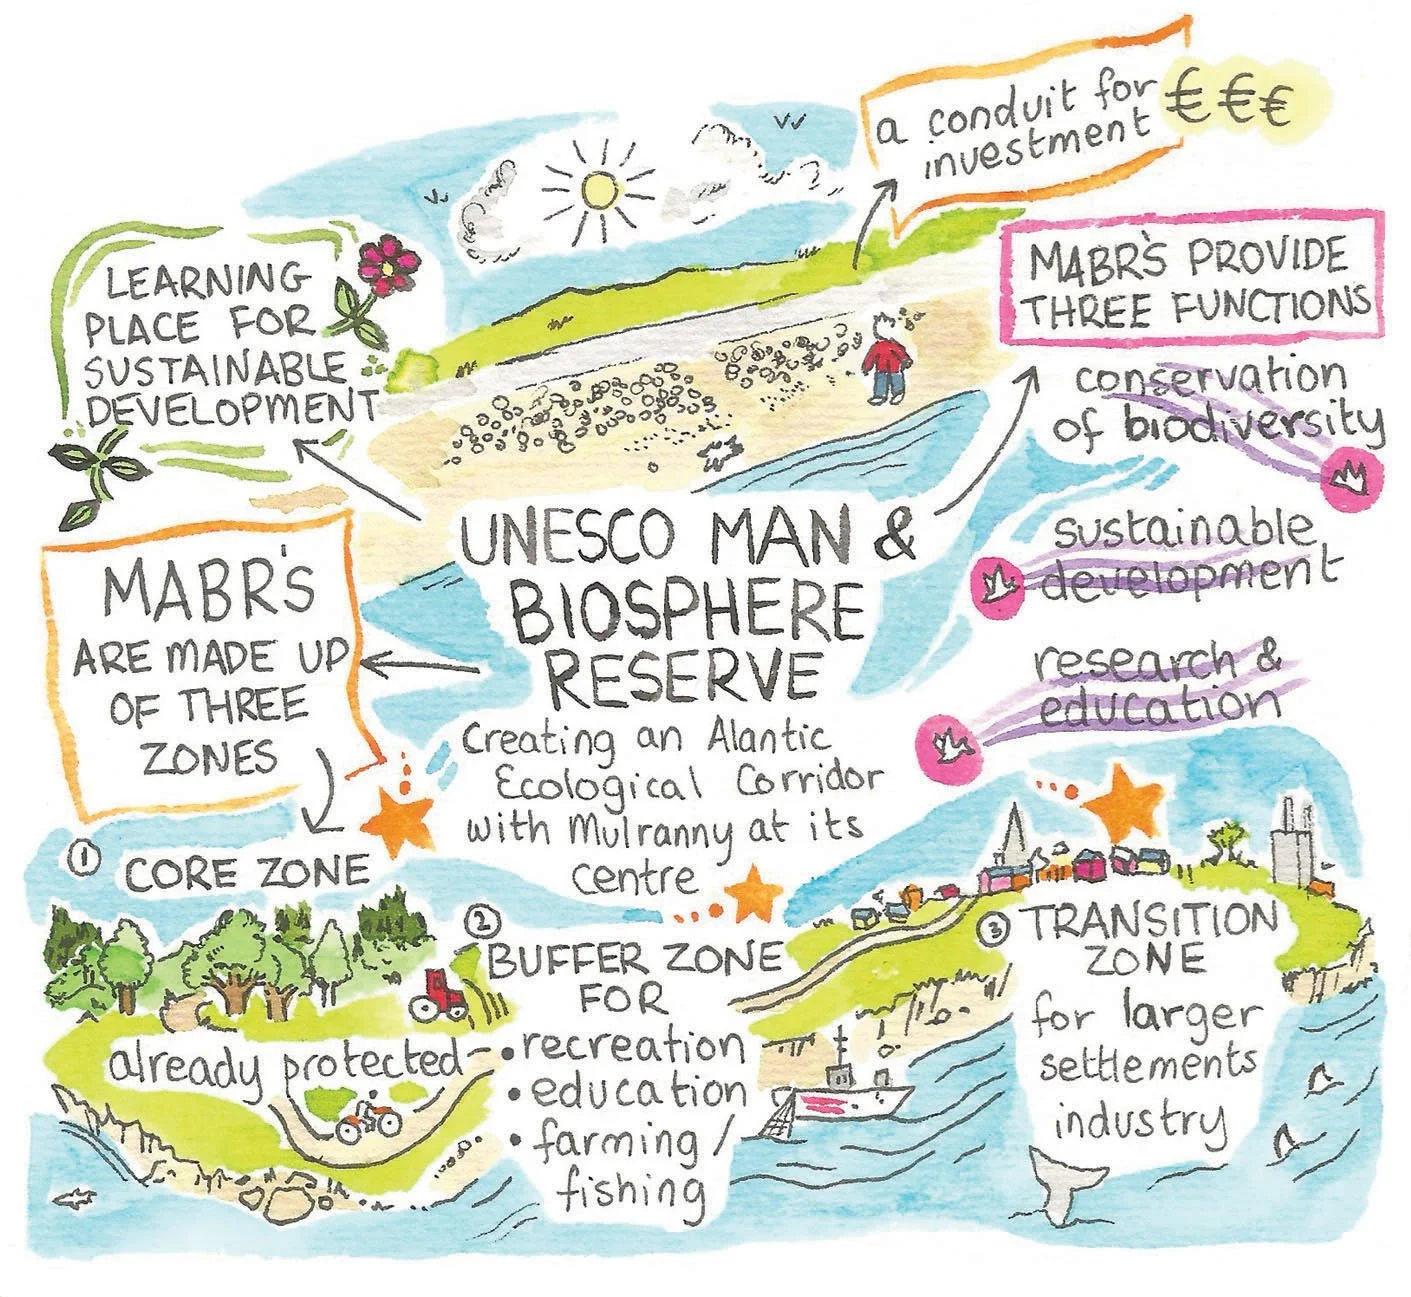 a conduit for € € €
investment
LEARNING
PLACE FOR
SUSTAINABLE
DEVELOPMENT
MABR'S PROVIDE
THREE FUNCTIONS
conservation
of biodiversity
sustainable
development
research &
education
UNESCO MAN &
BIOSPHERE
RESERVE
Creating an Alantic
Ecological Corridor
with Mulranny at its
centre
MABR'S
ARE MADE UP
OF THREE
ZONES
① CORE ZONE
already protected
②
BUFFER ZONE
FOR
• recreation
• education
• farming/
fishing
③ TRANSITION
ZONE
for larger
settlements
industry